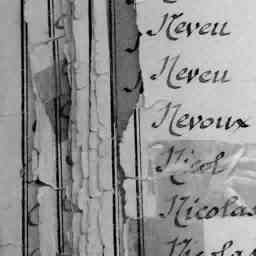 Neveu
Neveu
Nevoux
Nicol
Nicolas
Nicolas